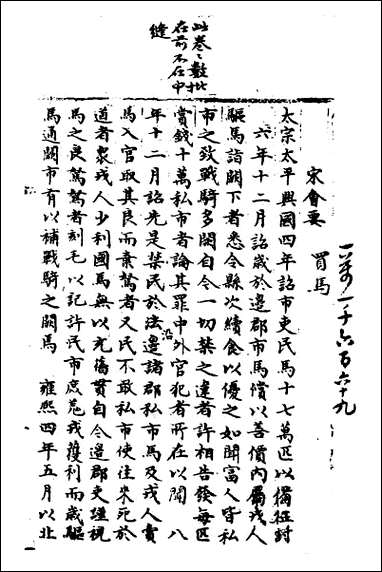 此卷之數批
在前不在中
縫
一萬一千六百六十九
宋會要
買馬
太宗太平興國四年詔市吏民馬十七萬匹以備征討
六年十二月詔歲於邊郡市馬償以善價內屬戎人
驅馬詣闕下者悉令縣次續食以優之如聞富人皆私
市之致戰騎多闕自今一切禁之違者許相告發每匹
賞錢十萬私市者論其罪中外官犯者所在以聞 八
沿
年十二月詔先是禁民於法邊諸郡私市馬及戎人賣
馬入官取其良而棄駑者又民不敢私市使往來死於
道者衆戎人少利國馬無以充舊貫自今邊郡吏謹視
馬之良駑駑者刻毛以記許民市庶羌戎獲利而歲驅
馬通關市有以補戰騎之闕焉 雍熙四年五月以北